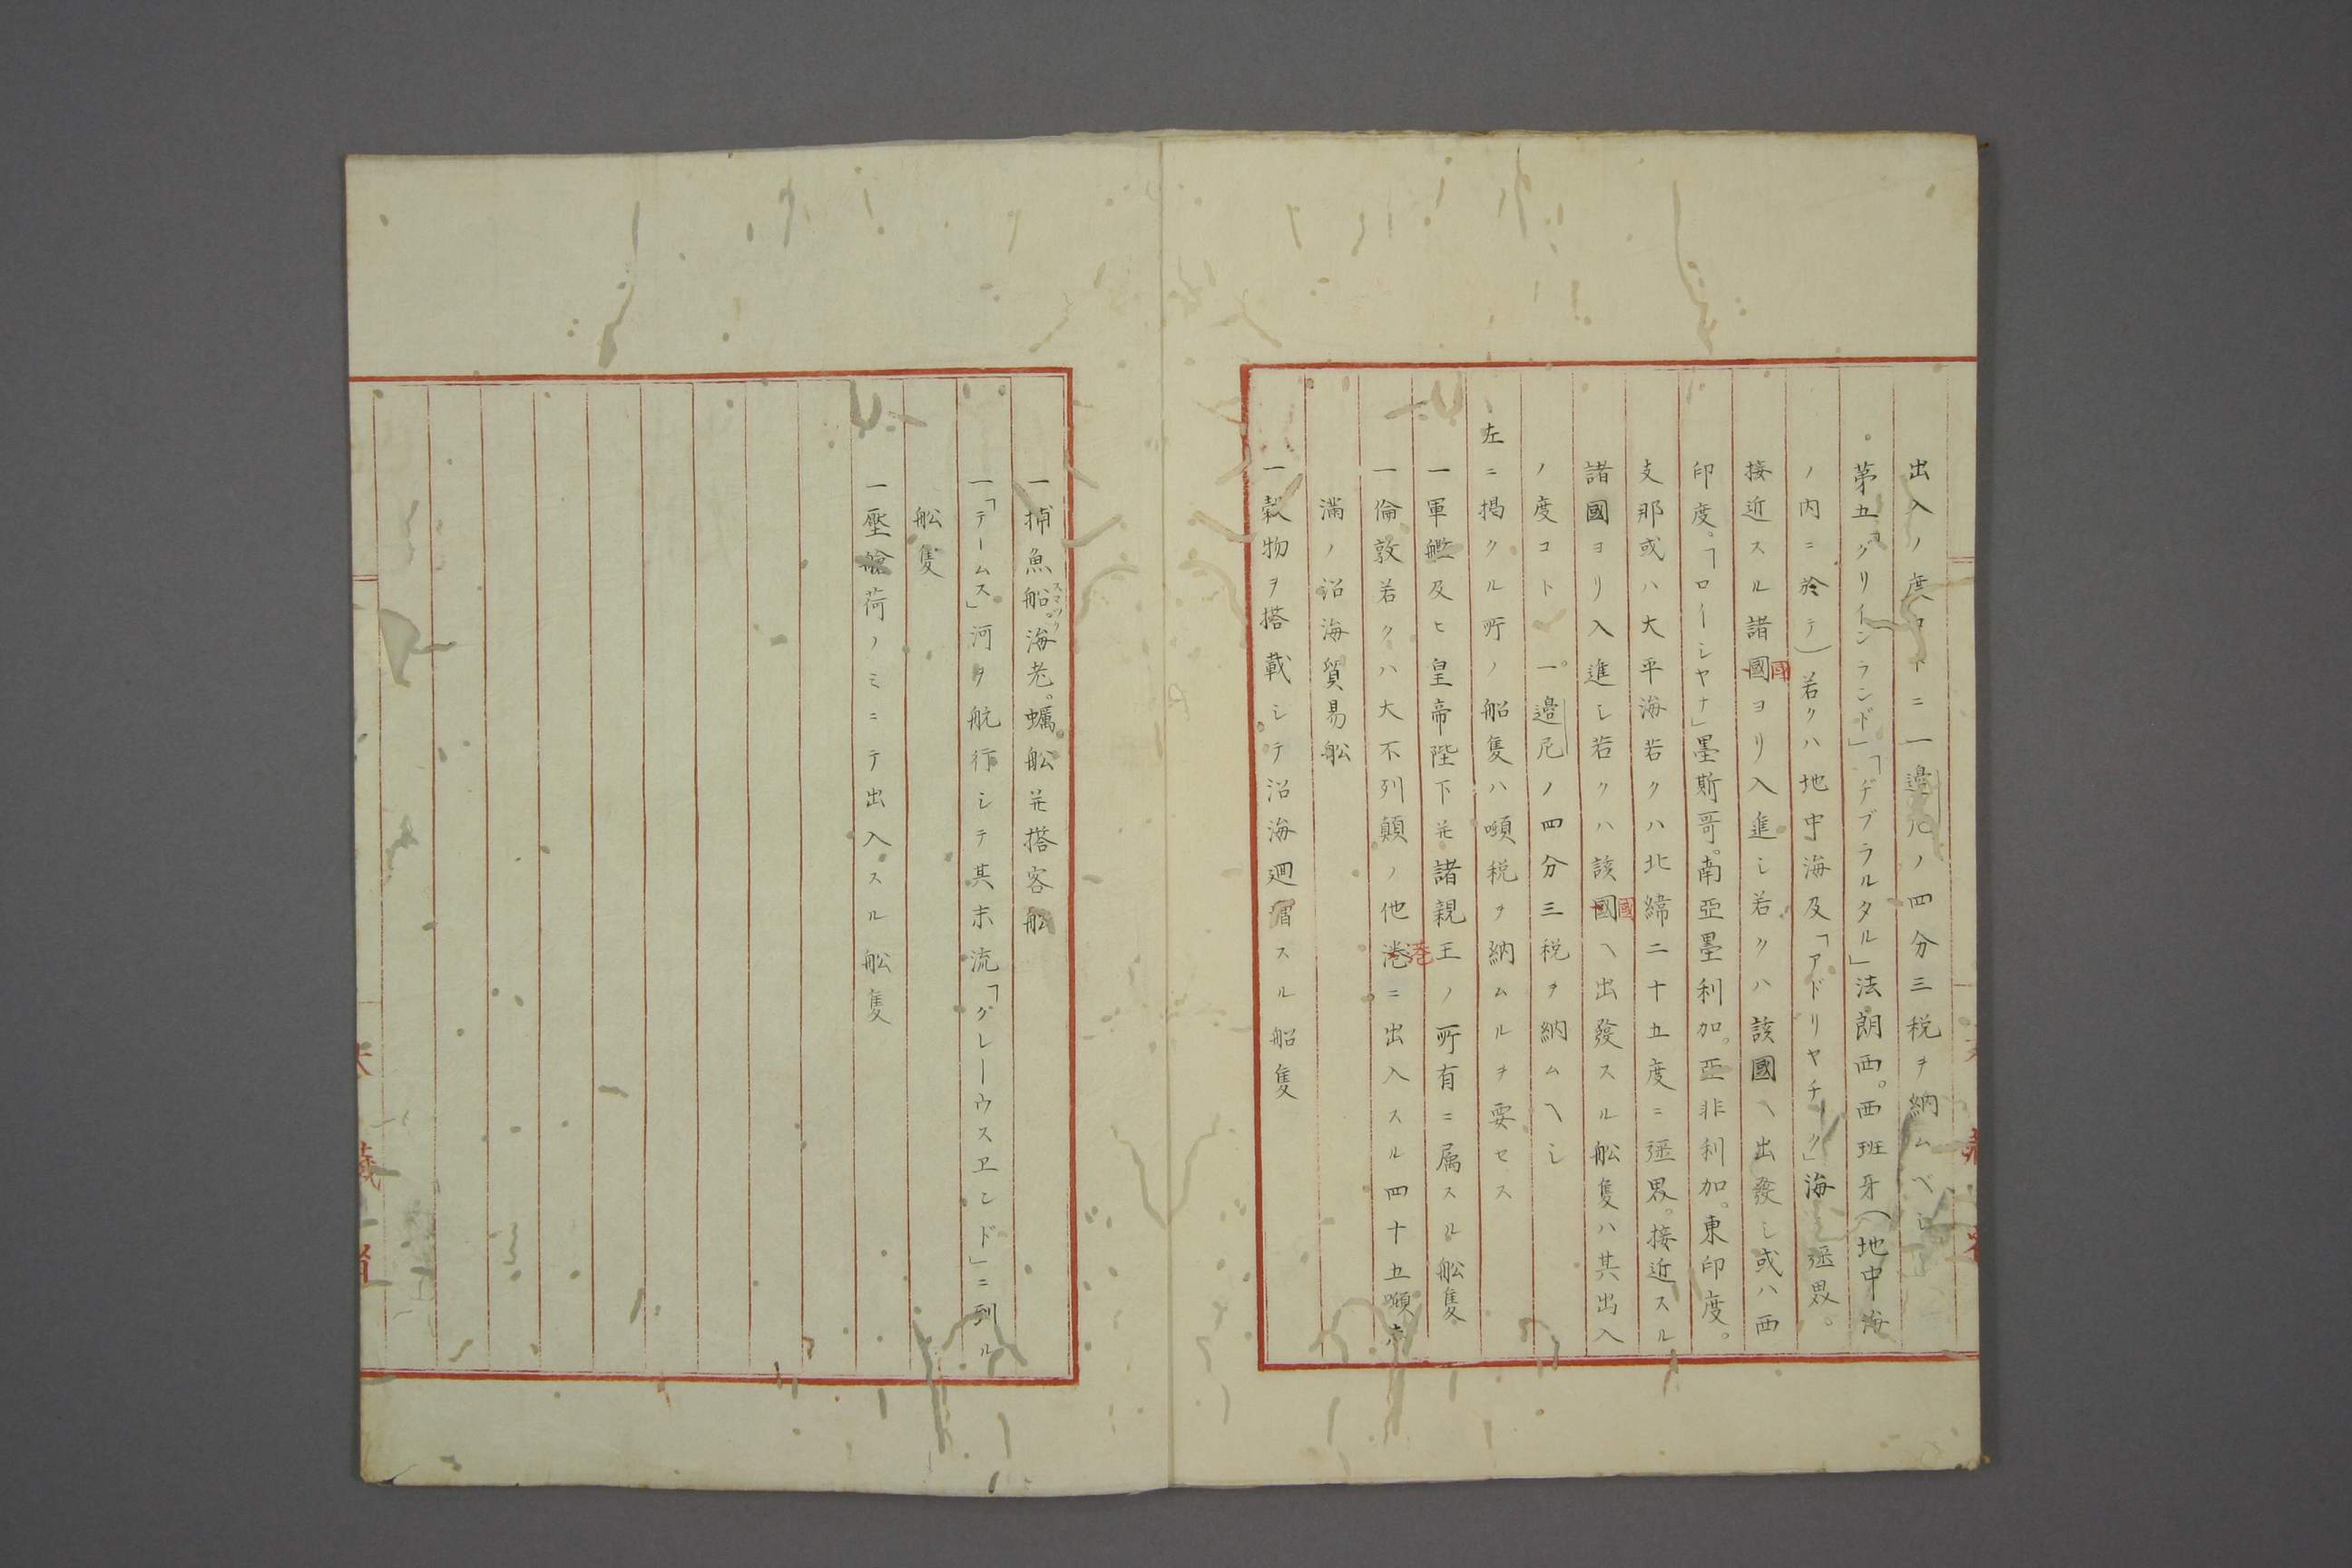 出入ノ度コトニ一邉尼ノ四分三税ヲ納ムベシ
苐五グリインランド」「ヂブラルタル」法朗西。西班牙(地中海
ノ内ニ於テ)若クハ地中海及「アドリヤチーク」海
接近スル諸國國ヨリ入進シ若クハ該國ヘ出發シ或ハ西
印度。「ローシヤナ」墨斯哥。南亞墨利加。亞非利加。東印度。
支那或ハ大平海若クハ北緯二十五度ニ。接近スル
諸國ヨリ入進シ若クハ該國國ヘ出發スル舩隻ハ其出入
ノ度コト一邉尼ノ四分三税ヲ納ムヘシ
左ニ掲クル所ノ船隻ハ噸税ヲ納ムルヲ要セス
一軍艦及ヒ皇帝陛下並諸親王ノ所有ニ属スル舩隻
一倫敦若クハ大不列顛ノ他港港ニ出入スル四十五噸
満ノ沿海貿易舩
一穀物ヲ搭載シテ沿海廻漕スル船隻
一捕魚船スマック。海老。蠣舩並搭客舩
一「テームス」河ヲ航行シテ其末流「グレーウスヱンド」ニ到ル
舩隻
一壓艙荷ノミニテ出入スル舩隻